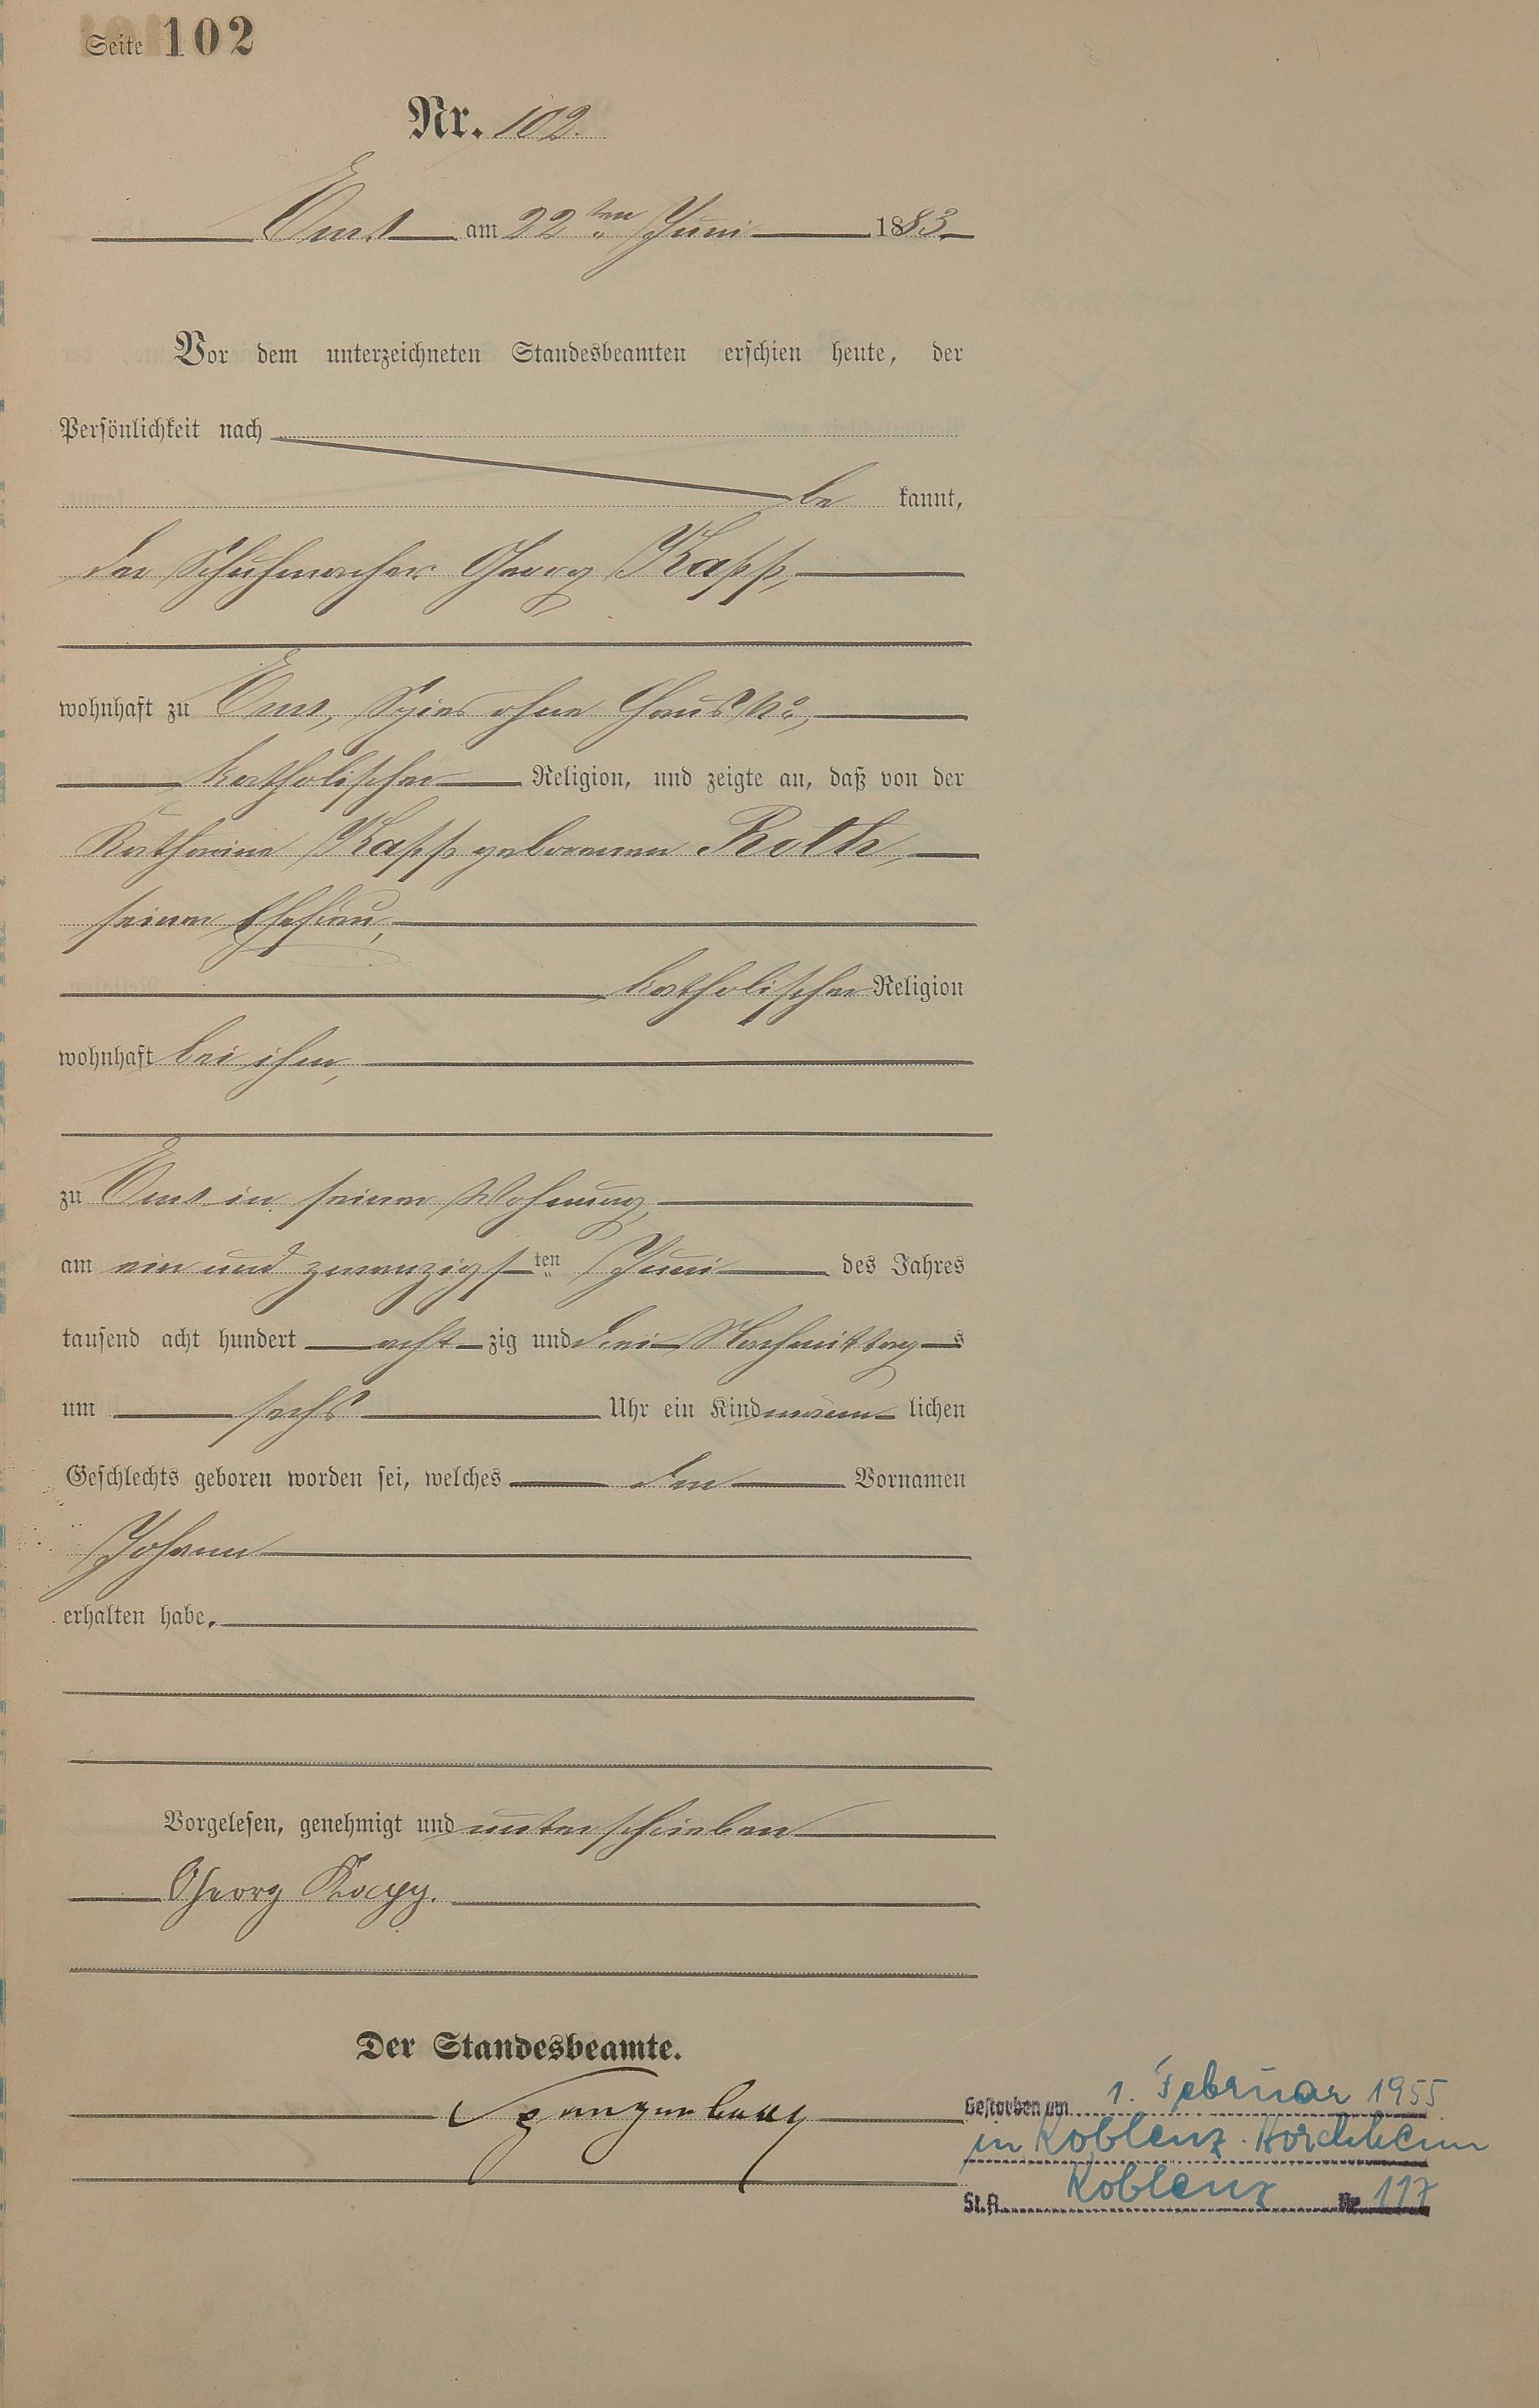 Seite 102
Nr. 102.
Ems am 22ten Juni 1883
Vor dem unterzeichneten Standesbeamten erschien heute, der
Persönlichkeit nach
be kannt,
der Schuhmacher Georg Kapp,
wohnhaft zu Ems, Spies ohne Haus No,
katholischer Religion, und zeigte an, daß von der
Katharina Kapp geborenen Roth,
seiner Ehefrau,
katholischer Religion
wohnhaft bei ihm,
zu Ems in seiner Wohnung,
am ein und zwanzigsten Juni des Jahres
tausend acht hundert acht zig und drei Nachmittags
um sechs Uhr ein Kind männ lichen
Geschlechts geboren worden sei, welches den Vornamen
Johann
erhalten habe.
Vorgelesen, genehmigt und unterschrieben
Georg Kapp.
Der Standesbeamte.
Spangenberg
Gestorben am 1. Februar 1955
in Koblenz-Horchheim
St.A. Koblenz Nr 117